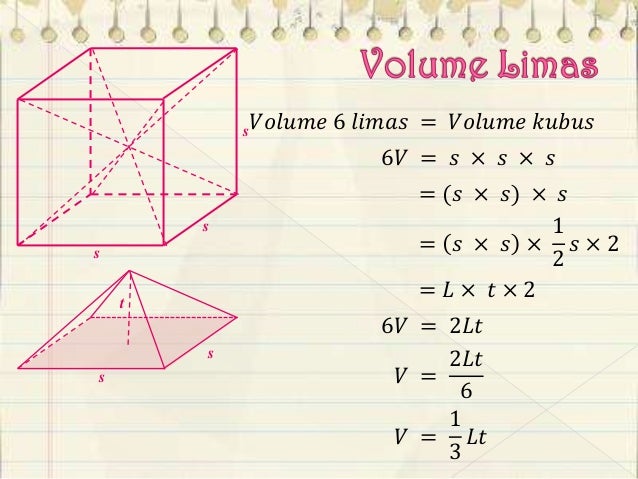 Volume Limas
Volume 6 limas = Volume kubus
6V = s × s × s
= (s × s) × s
= (s × s) × 1/2 s × 2
= L × t × 2
6V = 2Lt
V = 2Lt/6
V = 1/3 Lt
s
s
s
t
s
s